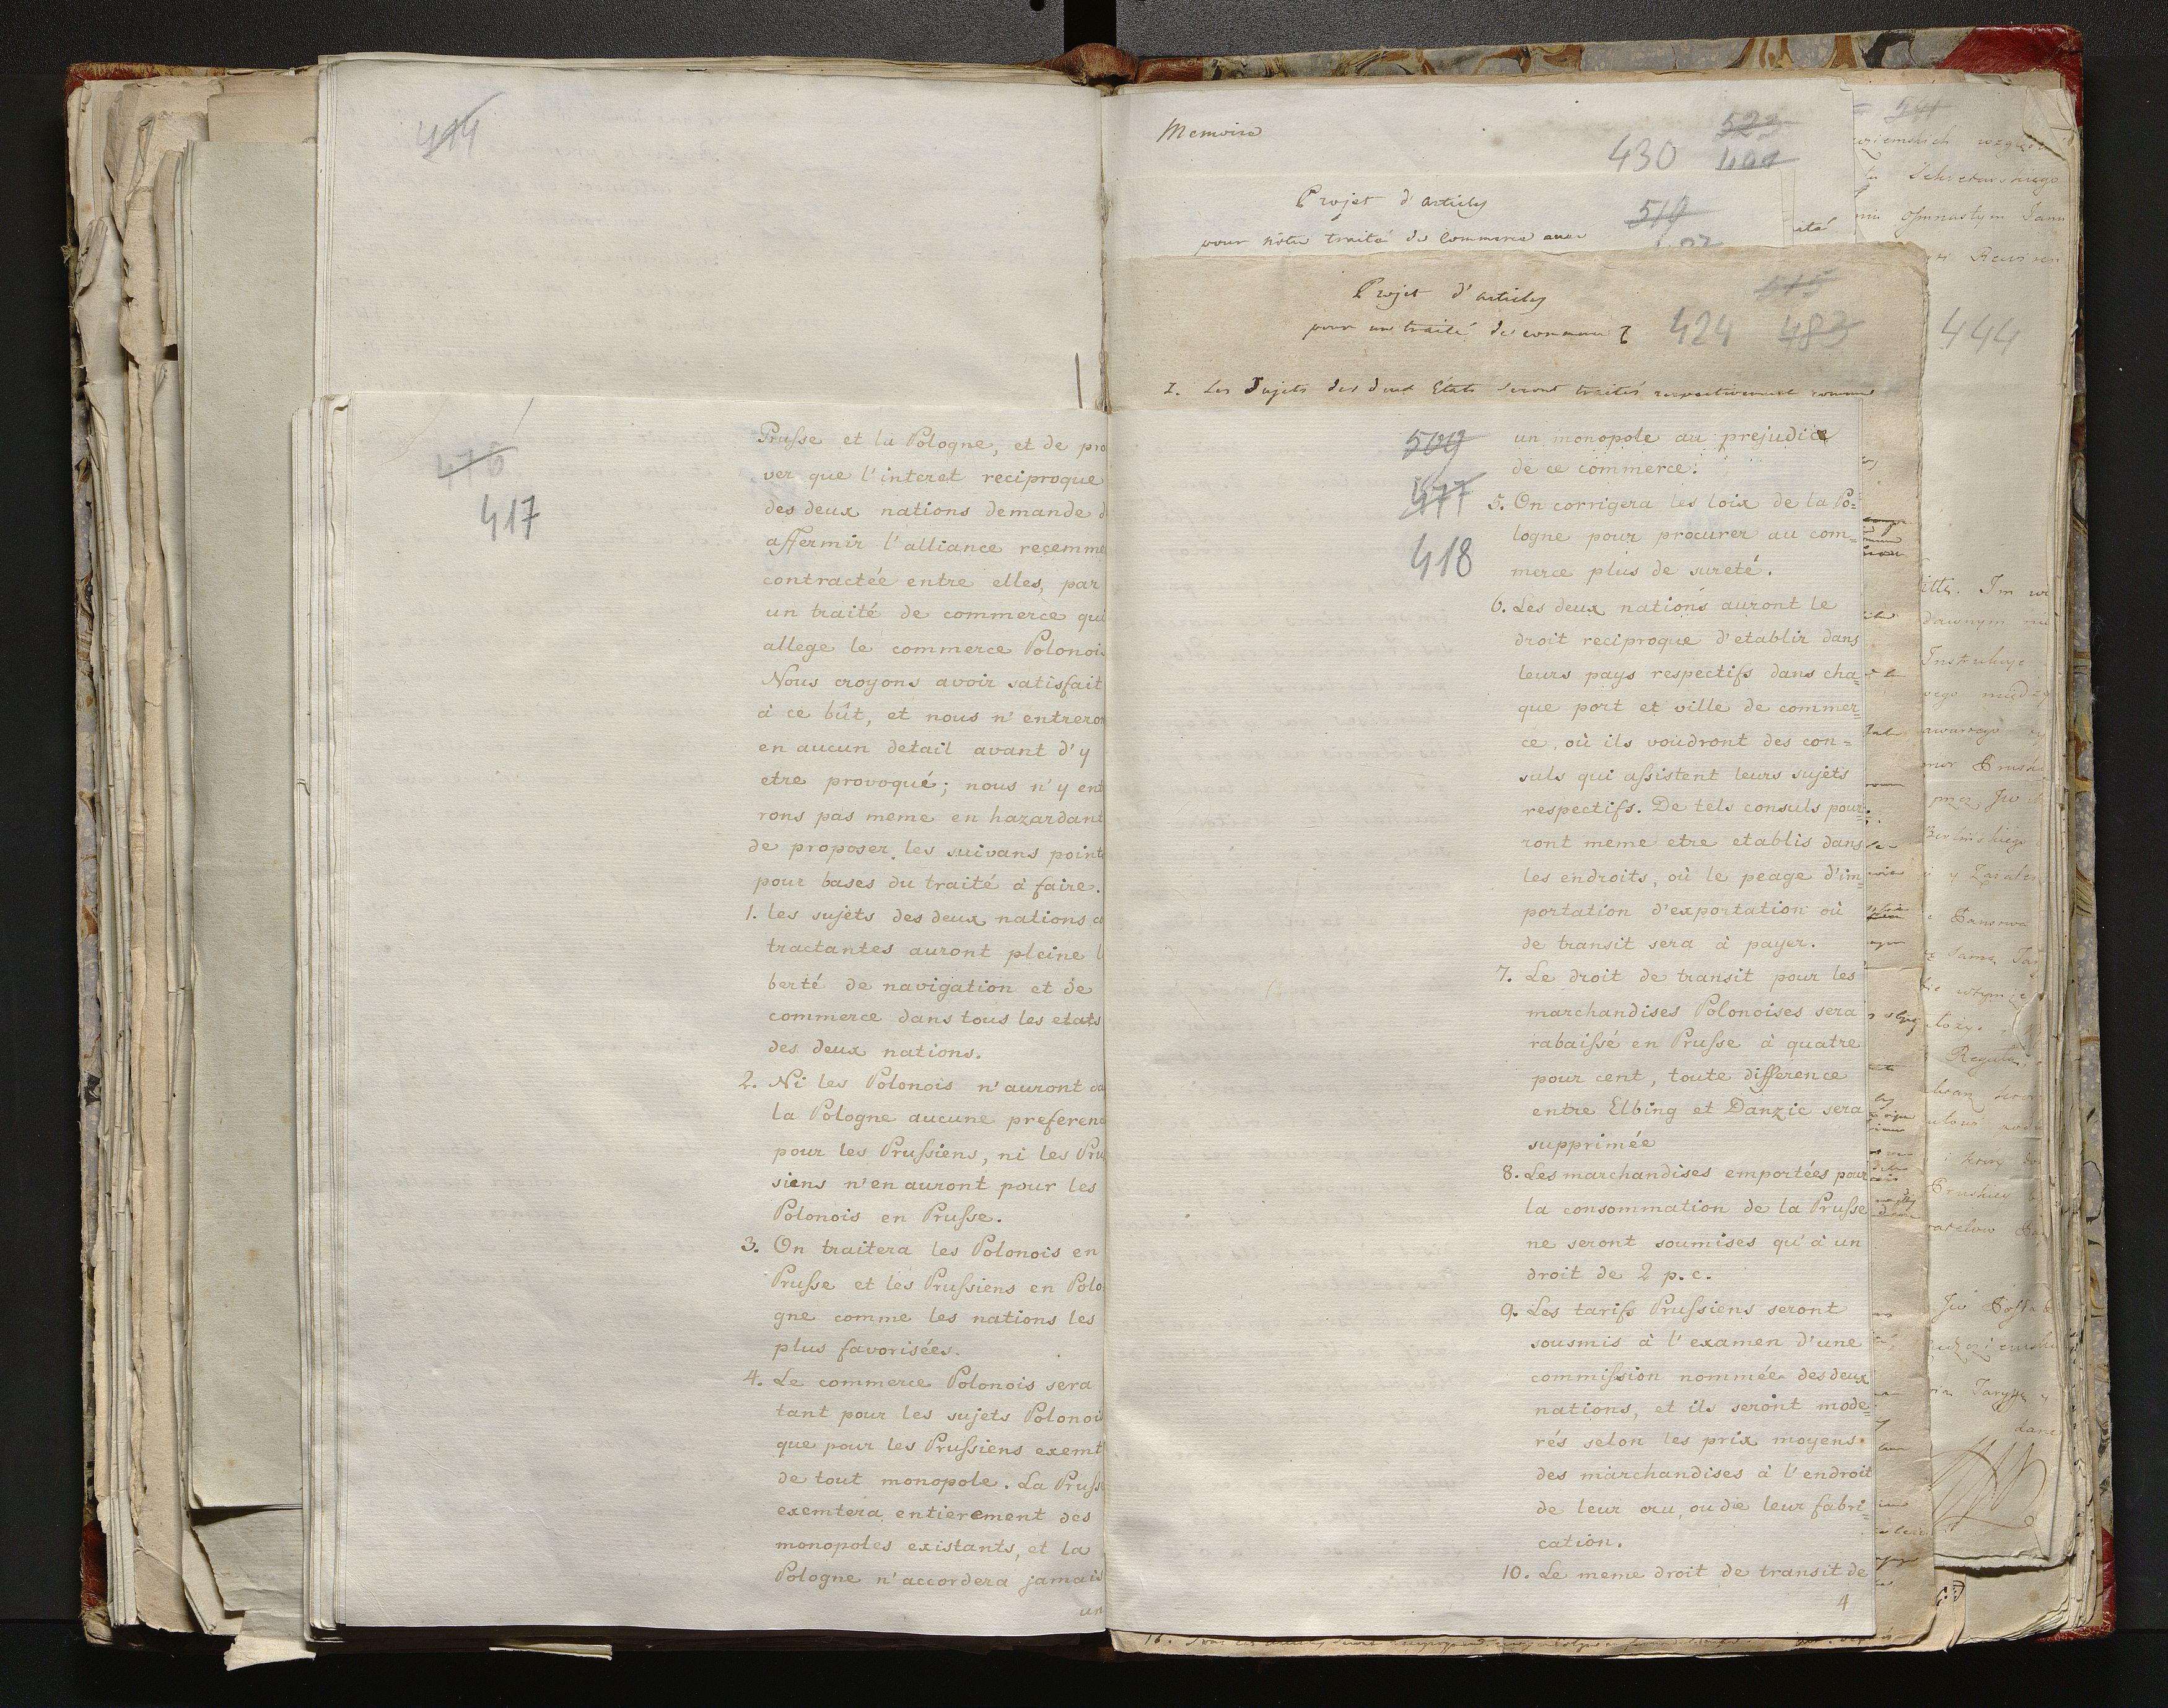 414
476
417
Prusse et la Pologne, et de pro
ver que l'interet reciproque
des deux nations demande d
affermir l'alliance recemme
contractée entre elles, par
un traité de commerce qui
allege le commerce Polonois
Nous croyons avoir satisfait
à ce bût, et nous n'entreron
en aucun detail avant d'y
etre provoqué; nous n'y ent
rons pas meme en hazardant
de proposer les suivans points
pour bases du traité à faire.
1. les sujets des deux nations co
tractantes auront pleine l
berté de navigation et de
commerce dans tous les etats
des deux nations.
2. Ni les Polonois n'auront da
la Pologne aucune preferenc
pour les Prussiens, ni les Prus
siens n'en auront pour les
Polonois en Prusse.
3. On traitera les Polonois en
Prusse et les Prussiens en Polo
gne comme les nations les
plus favorisées.
4. Le commerce Polonois sera
tant pour les sujets Polonois
que pour les Prussiens exemt
de tout monopole. La Prusse
exemtera entierement des
monopoles existants, et la
Pologne n'accordera jamais
un
Memoire
523
430
Projet d'articles
519
pour nôtre traité de Commerce avec
Projet d'articles
515
pour un traité de commerce
424 483
1. Les Sujets des deux Etats seront traités respectivement comme
509
477
418
un monopole au prejudice
de ce commerce.
5. On corrigera les loix de la Po=
logne pour procurer au com=
merce plus de sureté.
6. Les deux nations auront le
droit reciproque d'etablir dans
leurs pays respectifs dans cha=
que port et ville de commer=
ce, où ils voudront des con=
suls qui assistent leurs sujets
respectifs. De tels consuls pour=
ront meme etre etablis dans
les endroits, où le peage d'im=
portation d'exportation où
de transit sera à payer.
7. Le droit de transit pour les
marchandises Polonoises sera
rabaissé en Prusse à quatre
pour cent, toute difference
entre Elbing et Danzic sera
supprimée
8. Les marchandises emportées pour
la consommation de la Prusse
ne seront soumises qu'à un
droit de 2 p.c.
9. Les tarifs Prussiens seront
sousmis à l'examen d'une
commission nommée des deux
nations, et ils seront mode=
rés selon les prix moyens
des marchandises à l'endroit
de leur cru, ou de leur fabri=
cation.
10. Le meme droit de transit de
4
541
Osmnastym
444
dawnym
Instrukcye